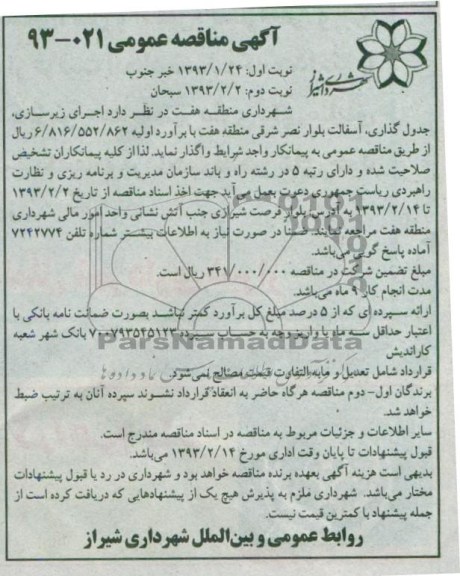 آگهی مناقصه عمومی ۰۲۱-۹۳
شهرداری شیراز
نوبت اول: ۱۳۹۳/۱/۲۴ خبر جنوب
نوبت دوم: ۱۳۹۳/۲/۲ سبحان
شهرداری منطقه هفت در نظر دارد اجرای زیرسازی،
جدول گذاری، آسفالت بلوار نصر شرقی منطقه هفت با برآورد اولیه ۶/۸۱۶/۵۵۲/۸۶۲ ریال
از طریق مناقصه عمومی به پیمانکار واجد شرایط واگذار نماید. لذا از کلیه پیمانکاران تشخیص
صلاحیت شده و دارای رتبه ۵ در رشته راه و باند سازمان مدیریت و برنامه ریزی و نظارت
راهبردی ریاست جمهوری دعوت بعمل می آید جهت اخذ اسناد مناقصه از تاریخ ۱۳۹۳/۲/۲
تا ۱۳۹۳/۲/۱۴ به آدرس: بلوار فرصت شیرازی جنب آتش نشانی واحد امور مالی شهرداری
منطقه هفت مراجعه نمایند. ضمنا در صورت نیاز به اطلاعات بیشتر شماره تلفن ۷۲۴۲۷۷۴
آماده پاسخ گویی می‌باشد.
مبلغ تضمین شرکت در مناقصه ۳۴۱/۰۰۰/۰۰۰ ریال است.
مدت انجام کار ۹ ماه می‌باشد.
ارائه سپرده ای که از ۵ درصد مبلغ کل برآورد کمتر نباشد بصورت ضمانت نامه بانکی با
اعتبار حداقل سه ماه یا واریز وجه به حساب سپرده ۷۰۰۷۹۳۵۴۵۱۲۳ بانک شهر شعبه
کاراندیش
ParsNamadData
قرارداد شامل تعدیل و مابه التفاوت قیمت مصالح نمی‌شود.
برندگان اول- دوم مناقصه هرگاه حاضر به انعقاد قرارداد نشوند سپرده آنان به ترتیب ضبط
خواهد شد.
سایر اطلاعات و جزئیات مربوط به مناقصه در اسناد مناقصه مندرج است.
قبول پیشنهادات تا پایان وقت اداری مورخ ۱۳۹۳/۲/۱۴ می‌باشد.
بدیهی است هزینه آگهی بعهده برنده مناقصه خواهد بود و شهرداری در رد یا قبول پیشنهادات
مختار می‌باشد. شهرداری ملزم به پذیرش هیچ یک از پیشنهادهایی که دریافت کرده است از
جمله پیشنهاد با کمترین قیمت نیست.
روابط عمومی و بین‌الملل شهرداری شیراز